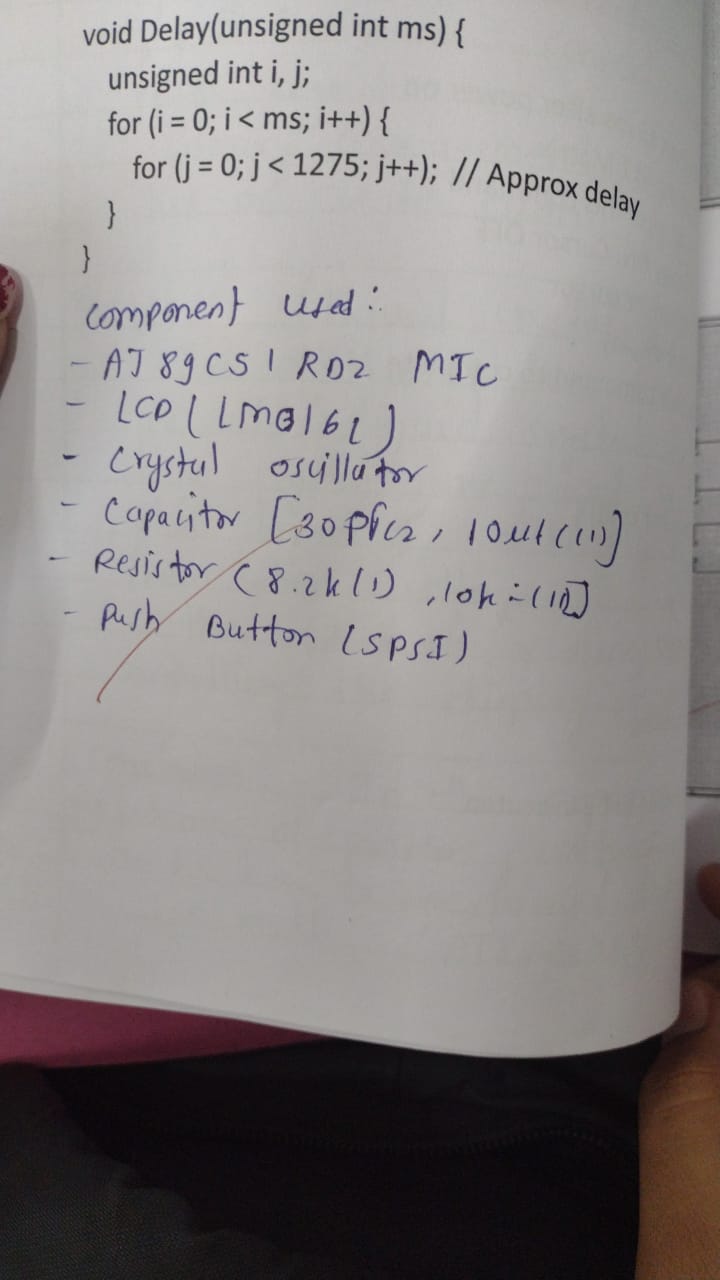 void Delay(unsigned int ms) {
unsigned int i, j;
for (i = 0; i < ms; i++) {
for (j = 0; j < 1275; j++); // Approx delay
}
}
component used :
- AT89C51RD2 MIC
- LCD (LM016L)
- Crystal oscillator
- Capacitor [30pf(2, 10uf(1)]
- Resistor (8.2k(1), 10k
- Push Button (SPST)